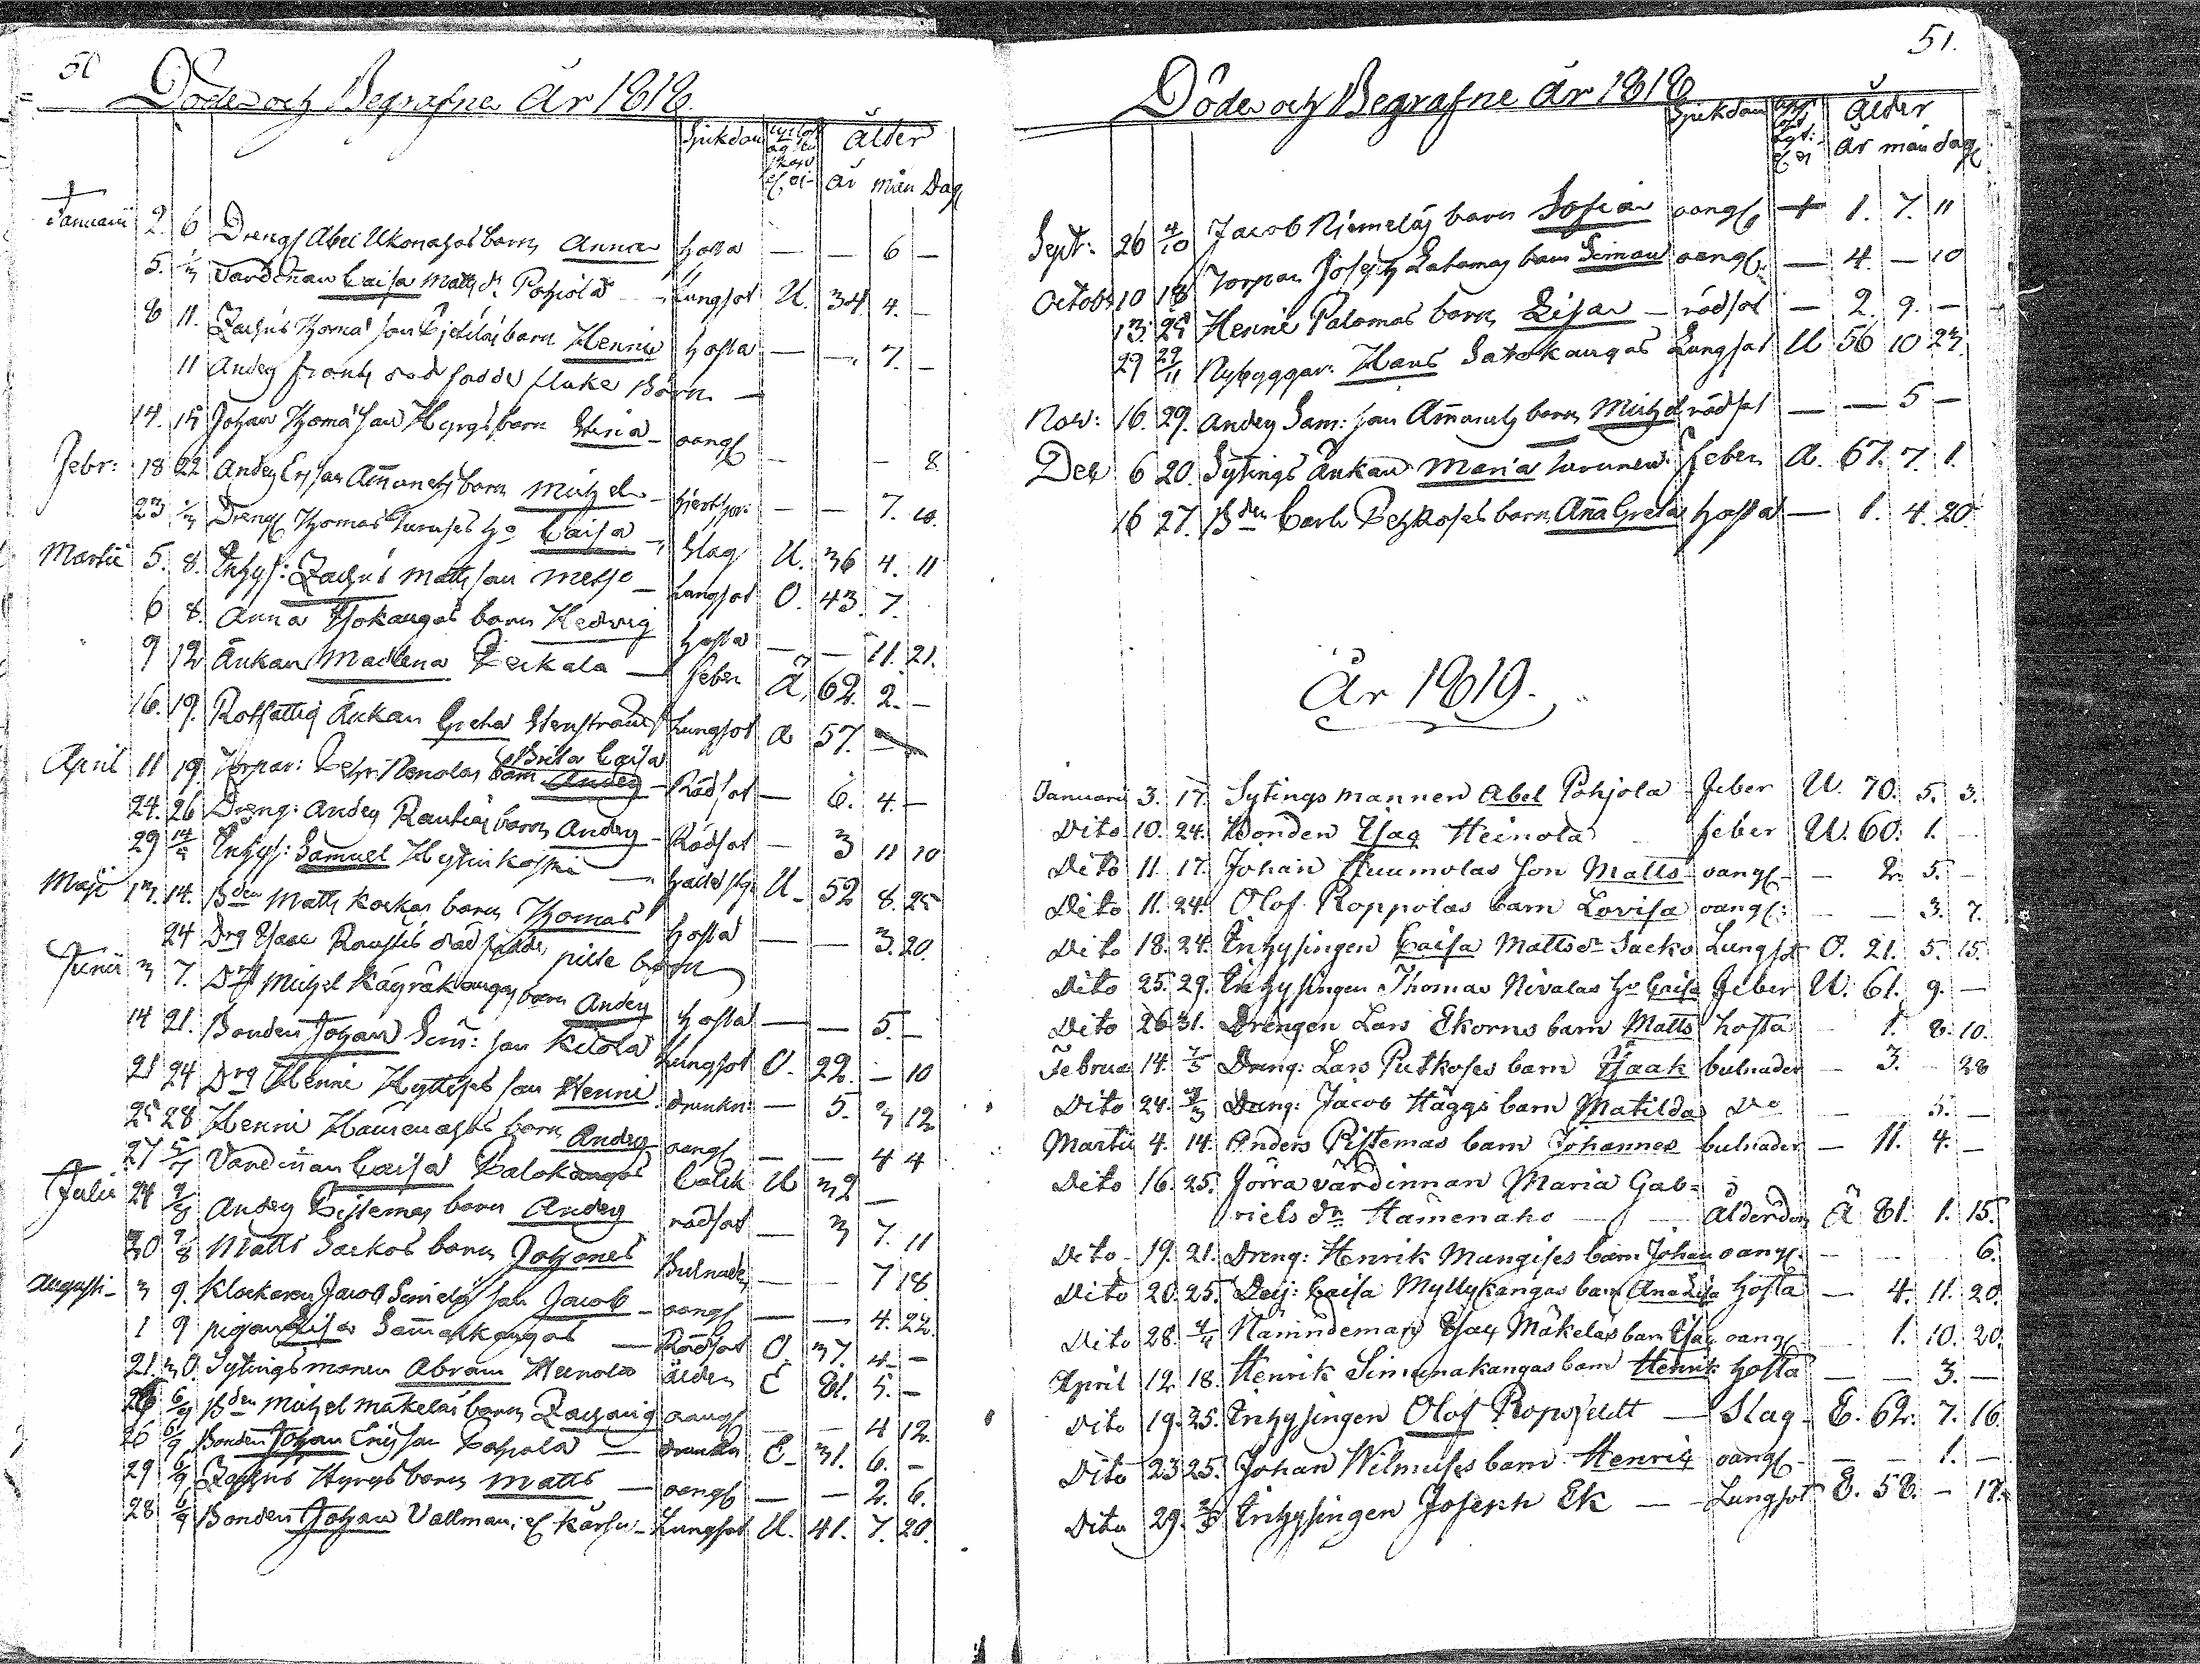 50
Döde och Begrafne År 1818.
Sjukdom
Ålder
år mån Dag
Januarii 2. 6 Drengs Abel Ukonahos barn Anna hosta — — 6 —
5. 1/3 Värdinnan Caisa Matts dr Pohjola — Lungsot U. 34 4. —
8 11. Zachris Thomas son barn Henric hosta — — 7. —
11 Anders dödfödde flicke Barn —
14. 15 Johan Thomas son Hyrys barn Stina — oangf — — 8
Febr: 18 22 Anders Ers son Ammonets barn Michel — — — 7. 10.
23 1/3 Drengs Thomas Turuses Ho Caisa — Slag U. 36 4. 11
Martii 5. 8. Inhys: Zachris Matts son Messo — Lungsot O. 43. 7.
6 8. Anna kangas barn Hedvig hosta — — 11. 21.
9 12 Änkan Madlena Peikala — feber Ä. 62 2. —
16. 19. Rotfattig Änkan Greta Stenström Lungsot a 57. —
Brita Caisa
April 11 19. Torpar: Pehr Nenolas barn Anders — Rödsot — 6. 4. —
24. 26 Dreng: Anders Rautias barn Anders — Rödsot — 3 11 10
29 14/5 Inhys: Samuel Hytinkoski — U. 52 8. 25
Maji 13. 14. Bden Matts Kockos barn Thomas hosta — — 3. 20.
24 Drg Isaac Rautios död födde pilte barn
Junii 3 7. Drg Michel Käyräkangas barn Anders hosta — — 5. —
14 21. Bonden Johan Sim: son Kitola Lungsot O. 22. — 10
21 24 Drg Henric Hyttises son Henric drunkn: — 5. 3 12
25 28 Henric Hämenahos barn Anders oangf — — 4 4
27 5/7 Värdinnan Caisa Palokangas Colik U 32 —
Julii 24 9/8 Anders Pistemas barn Anders rödsot — 3 7. 11
30 9/8 Matts Sackos barn Johannes Bulnader — — 7 18.
Augusti — 3 9. Klockaren Jacob son Jacob — oangf — — 4. 22.
1 9 pigan Lisa Sammalkangas — Rödsot O. 37. 4. —
21. 30. Sytingsmannen Abram Heinola ålder E 81. 5. —
6/9 Bden Michel Mäkeläs barn Zacharis oangf — — 4 12.
26 6/9 Bonden Johan Ericsson Pohjola — drunkn E — 31. 6. —
29 6/9 Zachris Hyrys barn Matts — oangf — — 2. 6.
28 6/9 Bonden Johan Vallman — Lungsot U. 41. 7. 20.
51.
Döde och Begrafne År 1818
Sjukdom
Ålder
år mån dag
Sept: 26 4/10 Jacob Niemeläs barn Sofia oangf 1. 7. 11
Octobr 10 18 Torpar Joseph barn Simon oangf: — 4. — 10
13. 25 Henric Palomas barn Lisa — rödsot — 2. 9. —
29 22/11 Nybyggar: Hans Satokangas Lungsot U 56 10 23.
Nov: 16. 29. Anders Sam: son Ammonets barn Michel rödsot — — 5 —
Dec 6 20. Sytings Änkan Maria Turunen feber A. 67. 7. 1.
16 27. Bden Carl Petkoses barn Anna Greta hosta — 1. 4. 20.
År 1819.
Januari 3. 17. Sytings mannen Abel Pohjola — feber U. 70. 5. 3.
Dito 10. 24. Bonden Isaq Heinola feber U. 60. 1. —
Dito 11. 17. Johan Huumolas son Matts oangf — — 2. 5. —
Dito 11. 24. Olof Roppolas barn Lovisa oangf: — — 3. 7.
Dito 18. 24. Inhysingen Caisa Matts dr Sacko Lungsot O. 21. 5. 15.
Dito 25. 29. Inhysingen Thomas Nivalas Ho Caisa Feber U. 61. 9. —
Dito 26 31. Drengen Lars Ekorns barn Matts hosta — 1. 8. 10.
Februa 14. 7/3 Dreng: Lars Putkoses barn Isaak bulnader — 3. — 28
Dito 24. 7/3 Dreng: Jacob Häggs barn Matilda Do — — 5. —
Martii 4. 14. Anders Pistemas barn Johannes bulnader — 11. 4. —
Dito 16. 25. Förra värdinnan Maria Gab=
riels dr Hämenaho — Ålderdom Ä 81. 1. 15.
Dito 19. 21. Dreng: Henrik Mangises barn Johan oangf. — — — 6.
Dito 20. 25. Caisa Myllykangas barn Ana Lisa hosta — 4. 11. 20.
Dito 28. 4/4 Nämndeman Isaq Mäkeläs barn Isaq oangf — 1. 10. 20.
April 12. 18. Henrik Simunakangas barn Henrik hosta — — 3. —
Dito 19. 25. Inhysingen Olof — Slag — E. 62. 7. 16.
Dito 23 25. Johan Wilmises barn Henric oangf — — 1. —
Dito 29. 2/5 Inhysingen Joseph Ek — Lungsot E. 58. — 17.